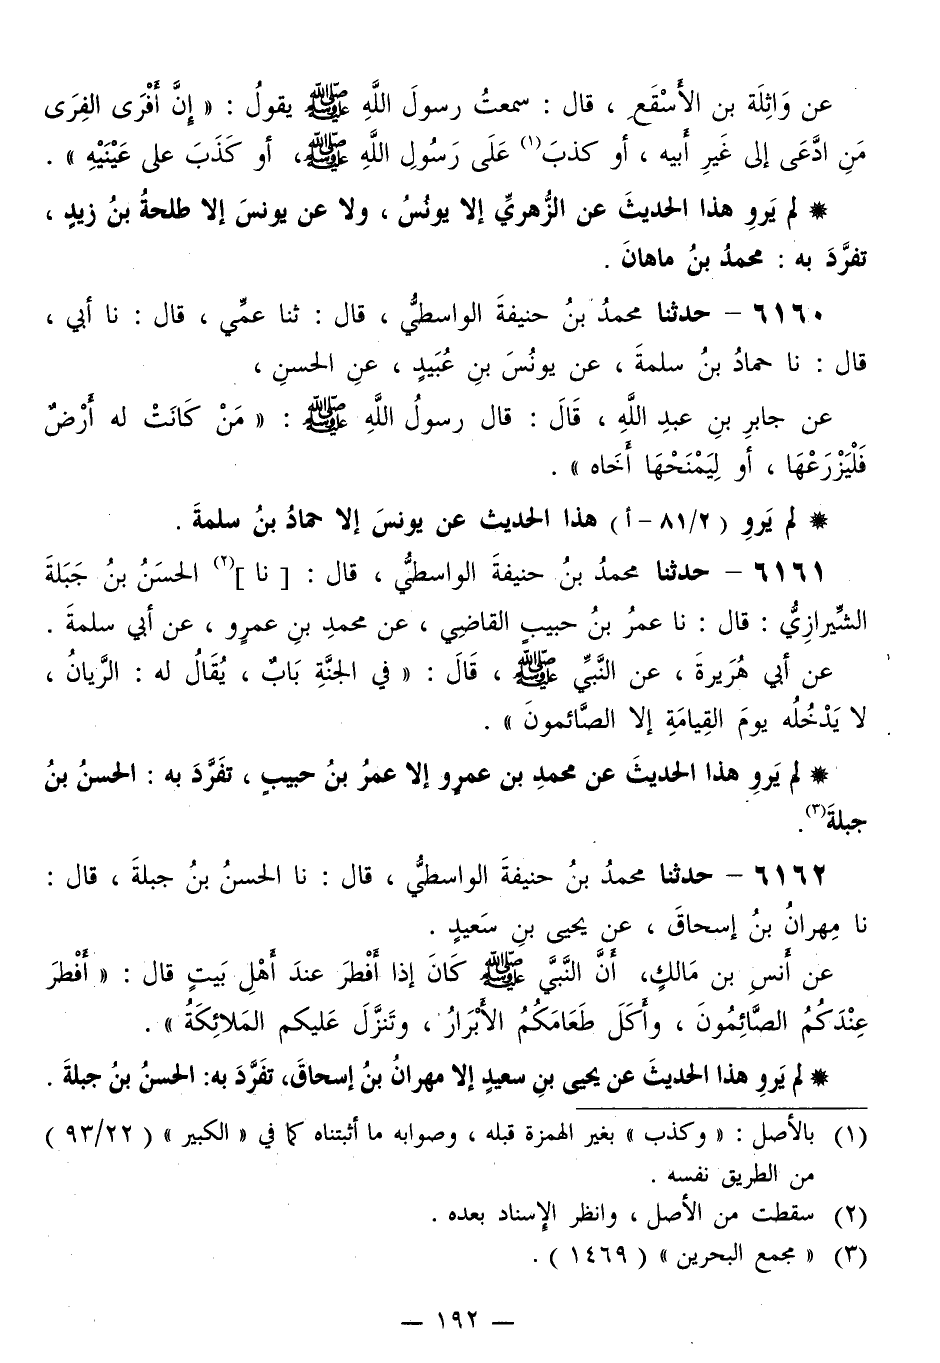 عن وَاثِلَة بن الأَسْقَعِ ، قال : سمعتُ رسولَ اللَّهِ ﷺ يقولُ : « إِنَّ أَفْرَى الفِرَى
مَنِ ادَّعَى إلى غَيرِ أبيه ، أو كذبَ(١) عَلَى رَسُولِ اللهِ ﷺ، أو كَذَبَ على عَيْنَيْهِ » .
* لم يَروِ هذا الحديثَ عن الزُّهريِّ إلا يونُسُ ، ولا عن يونسَ إلا طلحةُ بنُ زيدٍ ،
تفرَّدَ به : محمدُ بنُ ماهانَ .
٦١٦٠ – حدثنا محمدُ بنُ حنيفةَ الواسطيُّ ، قال : ثنا عمِّي ، قال : نا أبي ،
قال : نا حمادُ بنُ سلمةَ ، عن يونُسَ بنِ عُبَيدٍ ، عنِ الحسنِ ،
عن جابرِ بنِ عبدِ اللَّهِ ، قَالَ : قال رسولُ اللَّهِ ﷺ : « مَنْ كَانَتْ له أَرْضٌ
فَلْيَزْرَعْهَا ، أو لِيَمْنَحْهَا أَخَاه » .
* لم يَروِ ( ٨١/٢ – أ ) هذا الحديث عن يونسَ إلا حمادُ بنُ سلمةَ .
٦١٦١ – حدثنا محمدُ بنُ حنيفةَ الواسطيُّ ، قال : [ نا ](٢) الحسَنُ بنُ جَبَلةَ
الشِّيرازِيُّ : قال : نا عمرُ بنُ حبيبٍ القاضِي ، عن محمدِ بنِ عمرٍو ، عن أبي سلمةَ .
عن أبي هُرَيرةَ ، عن النَّبيِّ ﷺ ، قَالَ : « في الجنَّةِ بَابٌ ، يُقَالُ له : الرَّيانُ ،
لا يَدْخُلُه يومَ القِيامَةِ إلا الصَّائمونَ » .
* لم يَروِ هذا الحديثَ عن محمدِ بن عمرٍو إلا عمرُ بنُ حبيبٍ ، تفرَّدَ به : الحسنُ بنُ
جبلةَ(٣).
٦١٦٢ – حدثنا محمدُ بنُ حنيفةَ الواسطيُّ ، قال : نا الحسنُ بنُ جبلةَ ، قال :
نا مِهرانُ بنُ إسحاقَ ، عن يحيى بنِ سَعيدٍ .
عن أنسِ بن مَالكٍ، أَنَّ النَّبيَّ ﷺ كَانَ إذا أفْطرَ عندَ أهْلِ بَيتٍ قال : « أفْطرَ
عِنْدَكُمُ الصَّائِمُونَ ، وأكَلَ طَعَامَكُمُ الأبْرَارُ ، وتَنزَّلَ عَليكم المَلائِكَةُ » .
* لم يَروِ هذا الحديثَ عن يحيى بنِ سعيدٍ إلا مهرانُ بنُ إسحاقَ، تفرَّدَ به: الحسنُ بنُ جبلةَ .
(١) بالأصل : « وكذب » بغير الهمزة قبله ، وصوابه ما أثبتناه كما في « الكبير » ( ٩٣/٢٢ )
من الطريق نفسه .
(٢) سقطت من الأصل ، وانظر الإسناد بعده .
(٣) « مجمع البحرين » ( ١٤٦٩ ) .
— ١٩٢ —